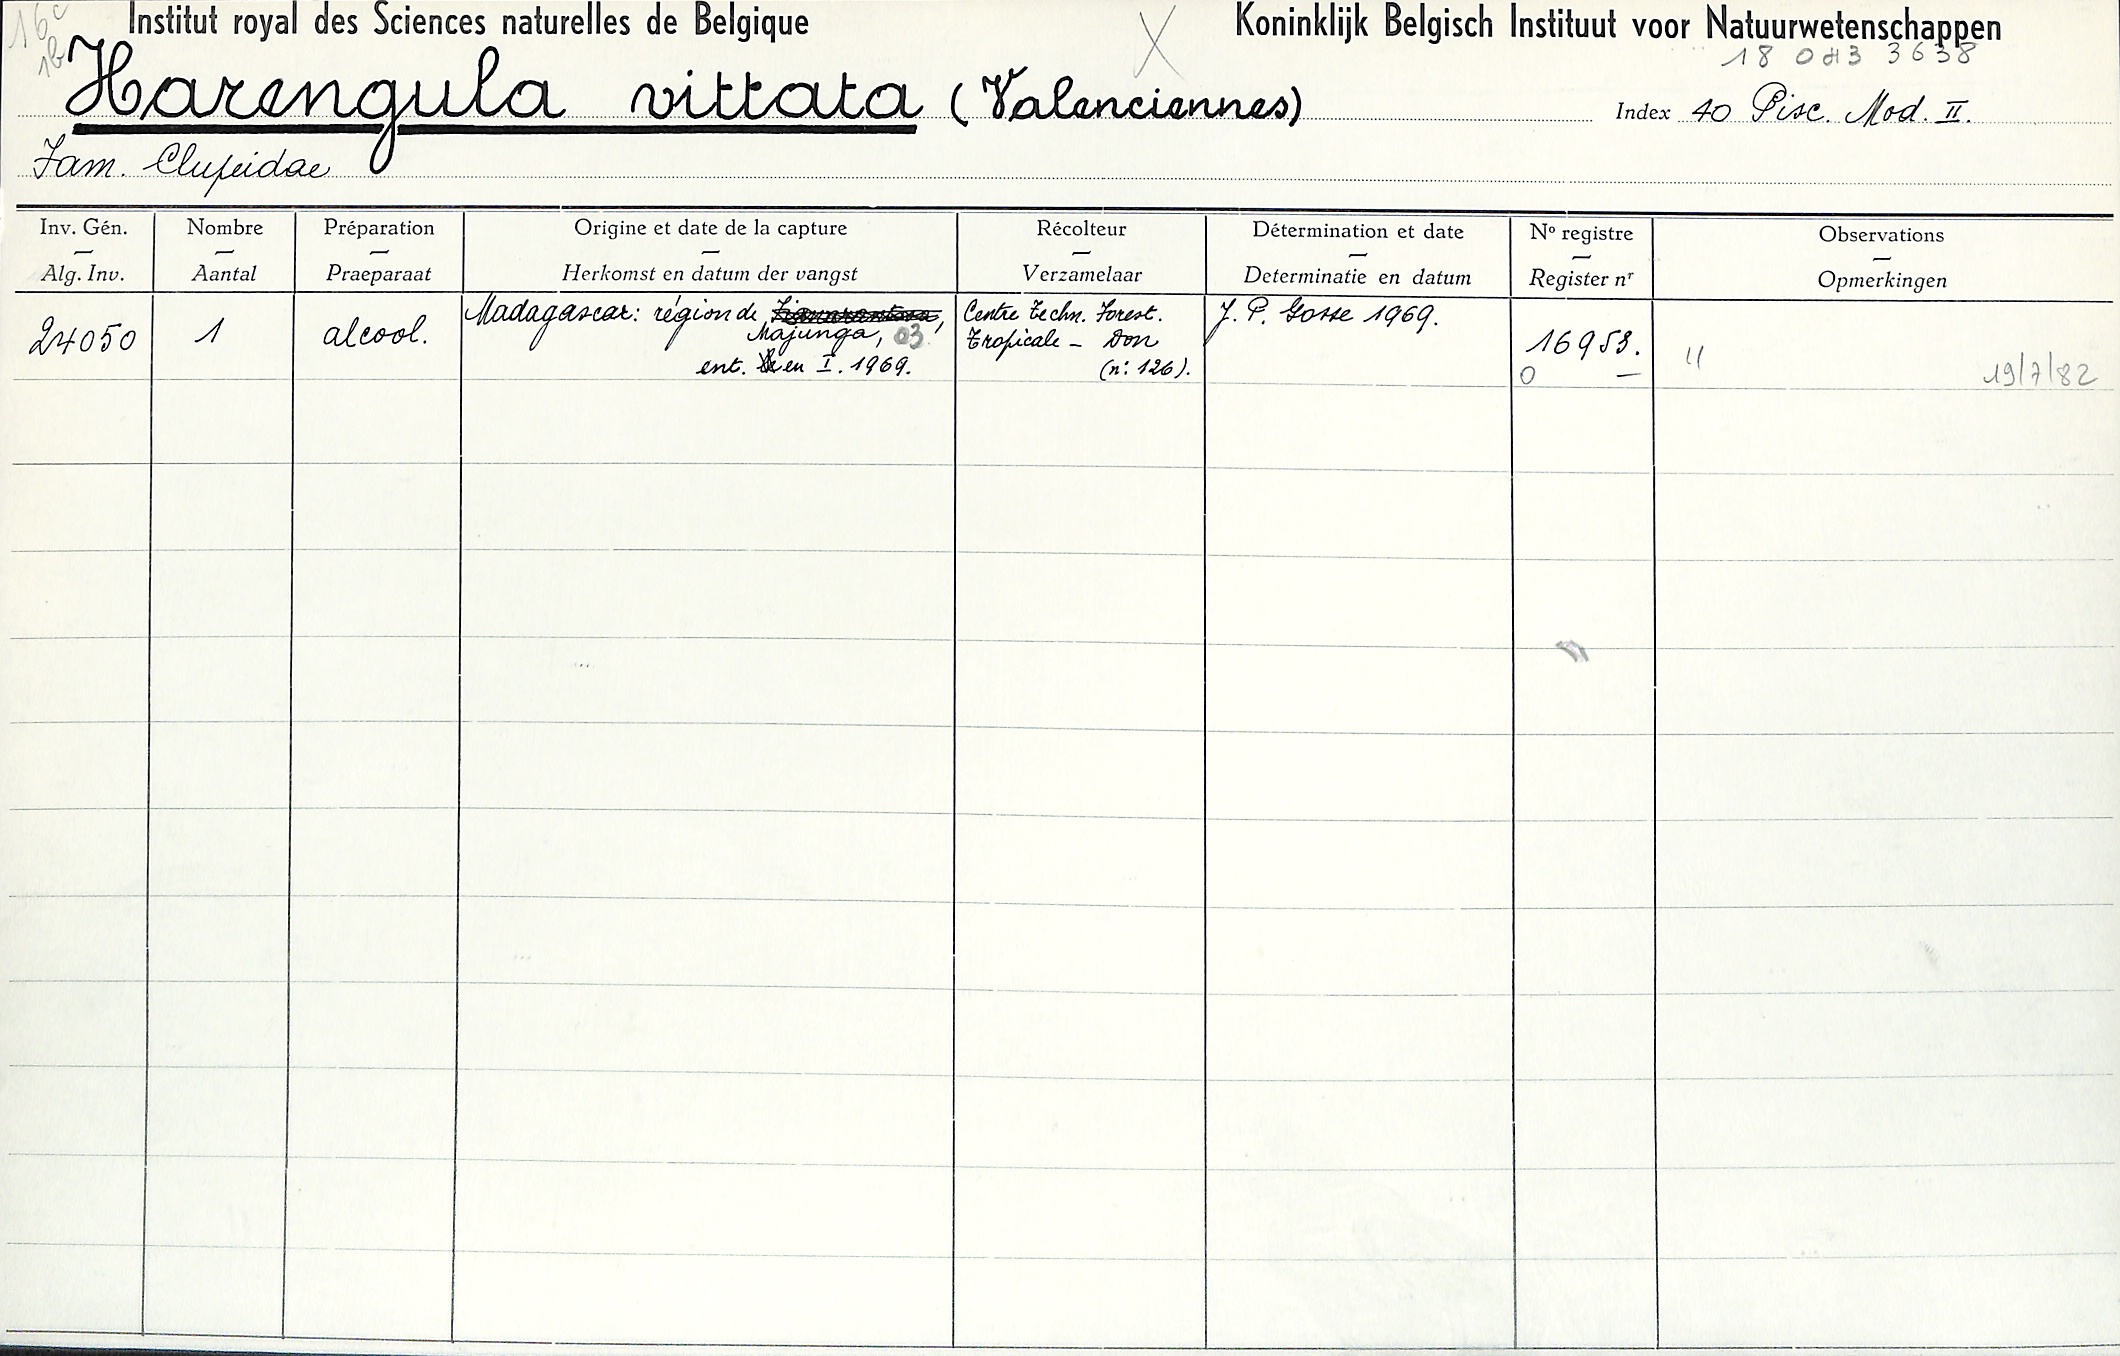 16c
1b
Institut royal des Sciences naturelles de Belgique
Koninklijk Belgisch Instituut voor Natuurwetenschappen
18 043 3638
Harengula vittata (Valenciennes)
Index 40 Pisc. Mod. II.
Fam. Clupeidae
Inv. Gén. — Alg. Inv.
Nombre — Aantal
Préparation — Praeparaat
Origine et date de la capture — Herkomst en datum der vangst
Récolteur — Verzamelaar
Détermination et date — Determinatie en datum
Nº registre — Register nr
Observations — Opmerkingen
24050
1
alcool.
Madagascar: région de
Majunga, 03
ent. en I. 1969.
Centre Techn. Forest.
Tropicale - Don
(n: 126).
J. P. Gosse 1969.
16953.
0 —
"
19/7/82